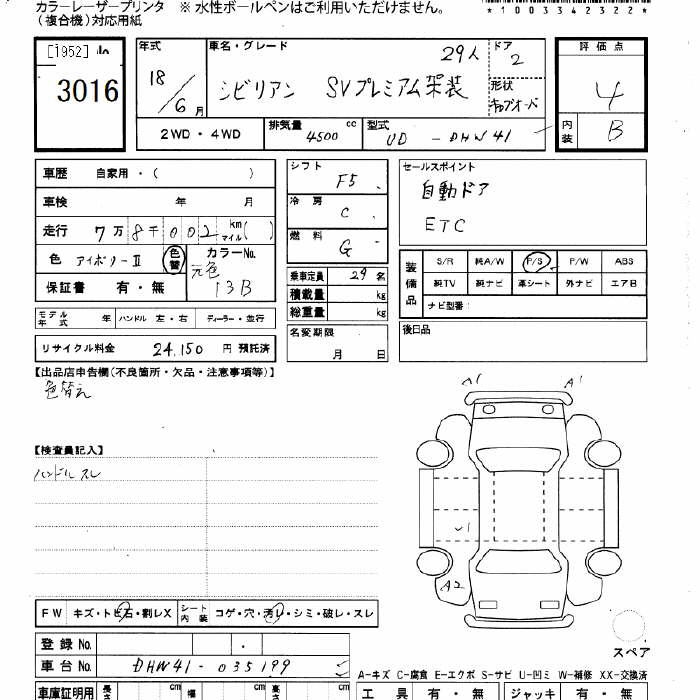 カラーレーザープリンタ ※ 水性ボールペンはご利用いただけません。
（複合機）対応用紙
*1003342322*
[1952]
3016
年式
18/6月
車名・グレード
29人
シビリアン SVプレミアム架装
ドア
2
形状
キャブオーバ
評価点
4
内装
B
2WD・4WD
排気量
4500
cc
型式
UD - DHW41
車歴 自家用・（ ）
車検 年 月
走行 7万8千002 km マイル( )
色 アイボリーⅡ 色替
カラーNo.
元色
13B
保証書 有・無
モデル年式 年 ハンドル 左・右 ディーラー・並行
リサイクル料金 24,150 円 預託済
シフト
F5
冷房
C
燃料
G
乗車定員 29 名
積載量 kg
総重量 kg
名変期限
月 日
セールスポイント
自動ドア
ETC
装備品
S/R 純A/W P/S P/W ABS
純TV 純ナビ 革シート 外ナビ エアB
ナビ型番:
後日品
【出品店申告欄(不良箇所・欠品・注意事項等)】
色替え
【検査員記入】
ハンドルスレ
A1 A1
A2
FW キズ・トビ石・割レX シート内装 コゲ・穴・汚レ・シミ・破レ・スレ
登録No.
車台No. DHW41-035199
スペア
A-キズ C-腐食 E-エクボ S-サビ U-凹ミ W-補修 XX-交換済
車庫証明用 長さ cm 幅 cm 高さ cm
工具 有・無 ジャッキ 有・無